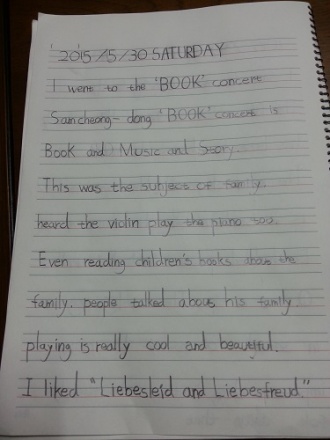 '2015/5/30 SATURDAY
I went to the 'BOOK' concert
Samcheong-dong 'BOOK' concert is
Book and Music and Story.
This was the subject of family.
heard the violin play the piano too.
Even reading children's books about the
family. people talked about his family
playing is really cool and beautiful.
I liked "Liebesleid and Liebesfreud."